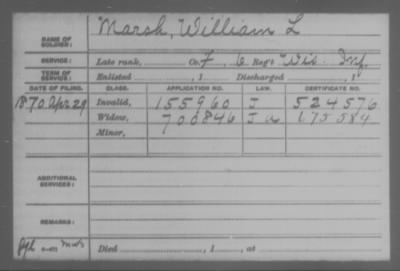 NAME OF SOLDIER: Marsh, William L
SERVICE: Late rank, Co. F, 6 Reg't Wis. Inf
TERM OF SERVICE: Enlisted , 1 Discharged , 1
DATE OF FILING. CLASS. APPLICATION NO. LAW. CERTIFICATE NO.
1870 Apr 29 Invalid, 155960 J 524576
Widow, 700846 J 175584
Minor,
ADDITIONAL SERVICES:
REMARKS:
Died , 1 , at